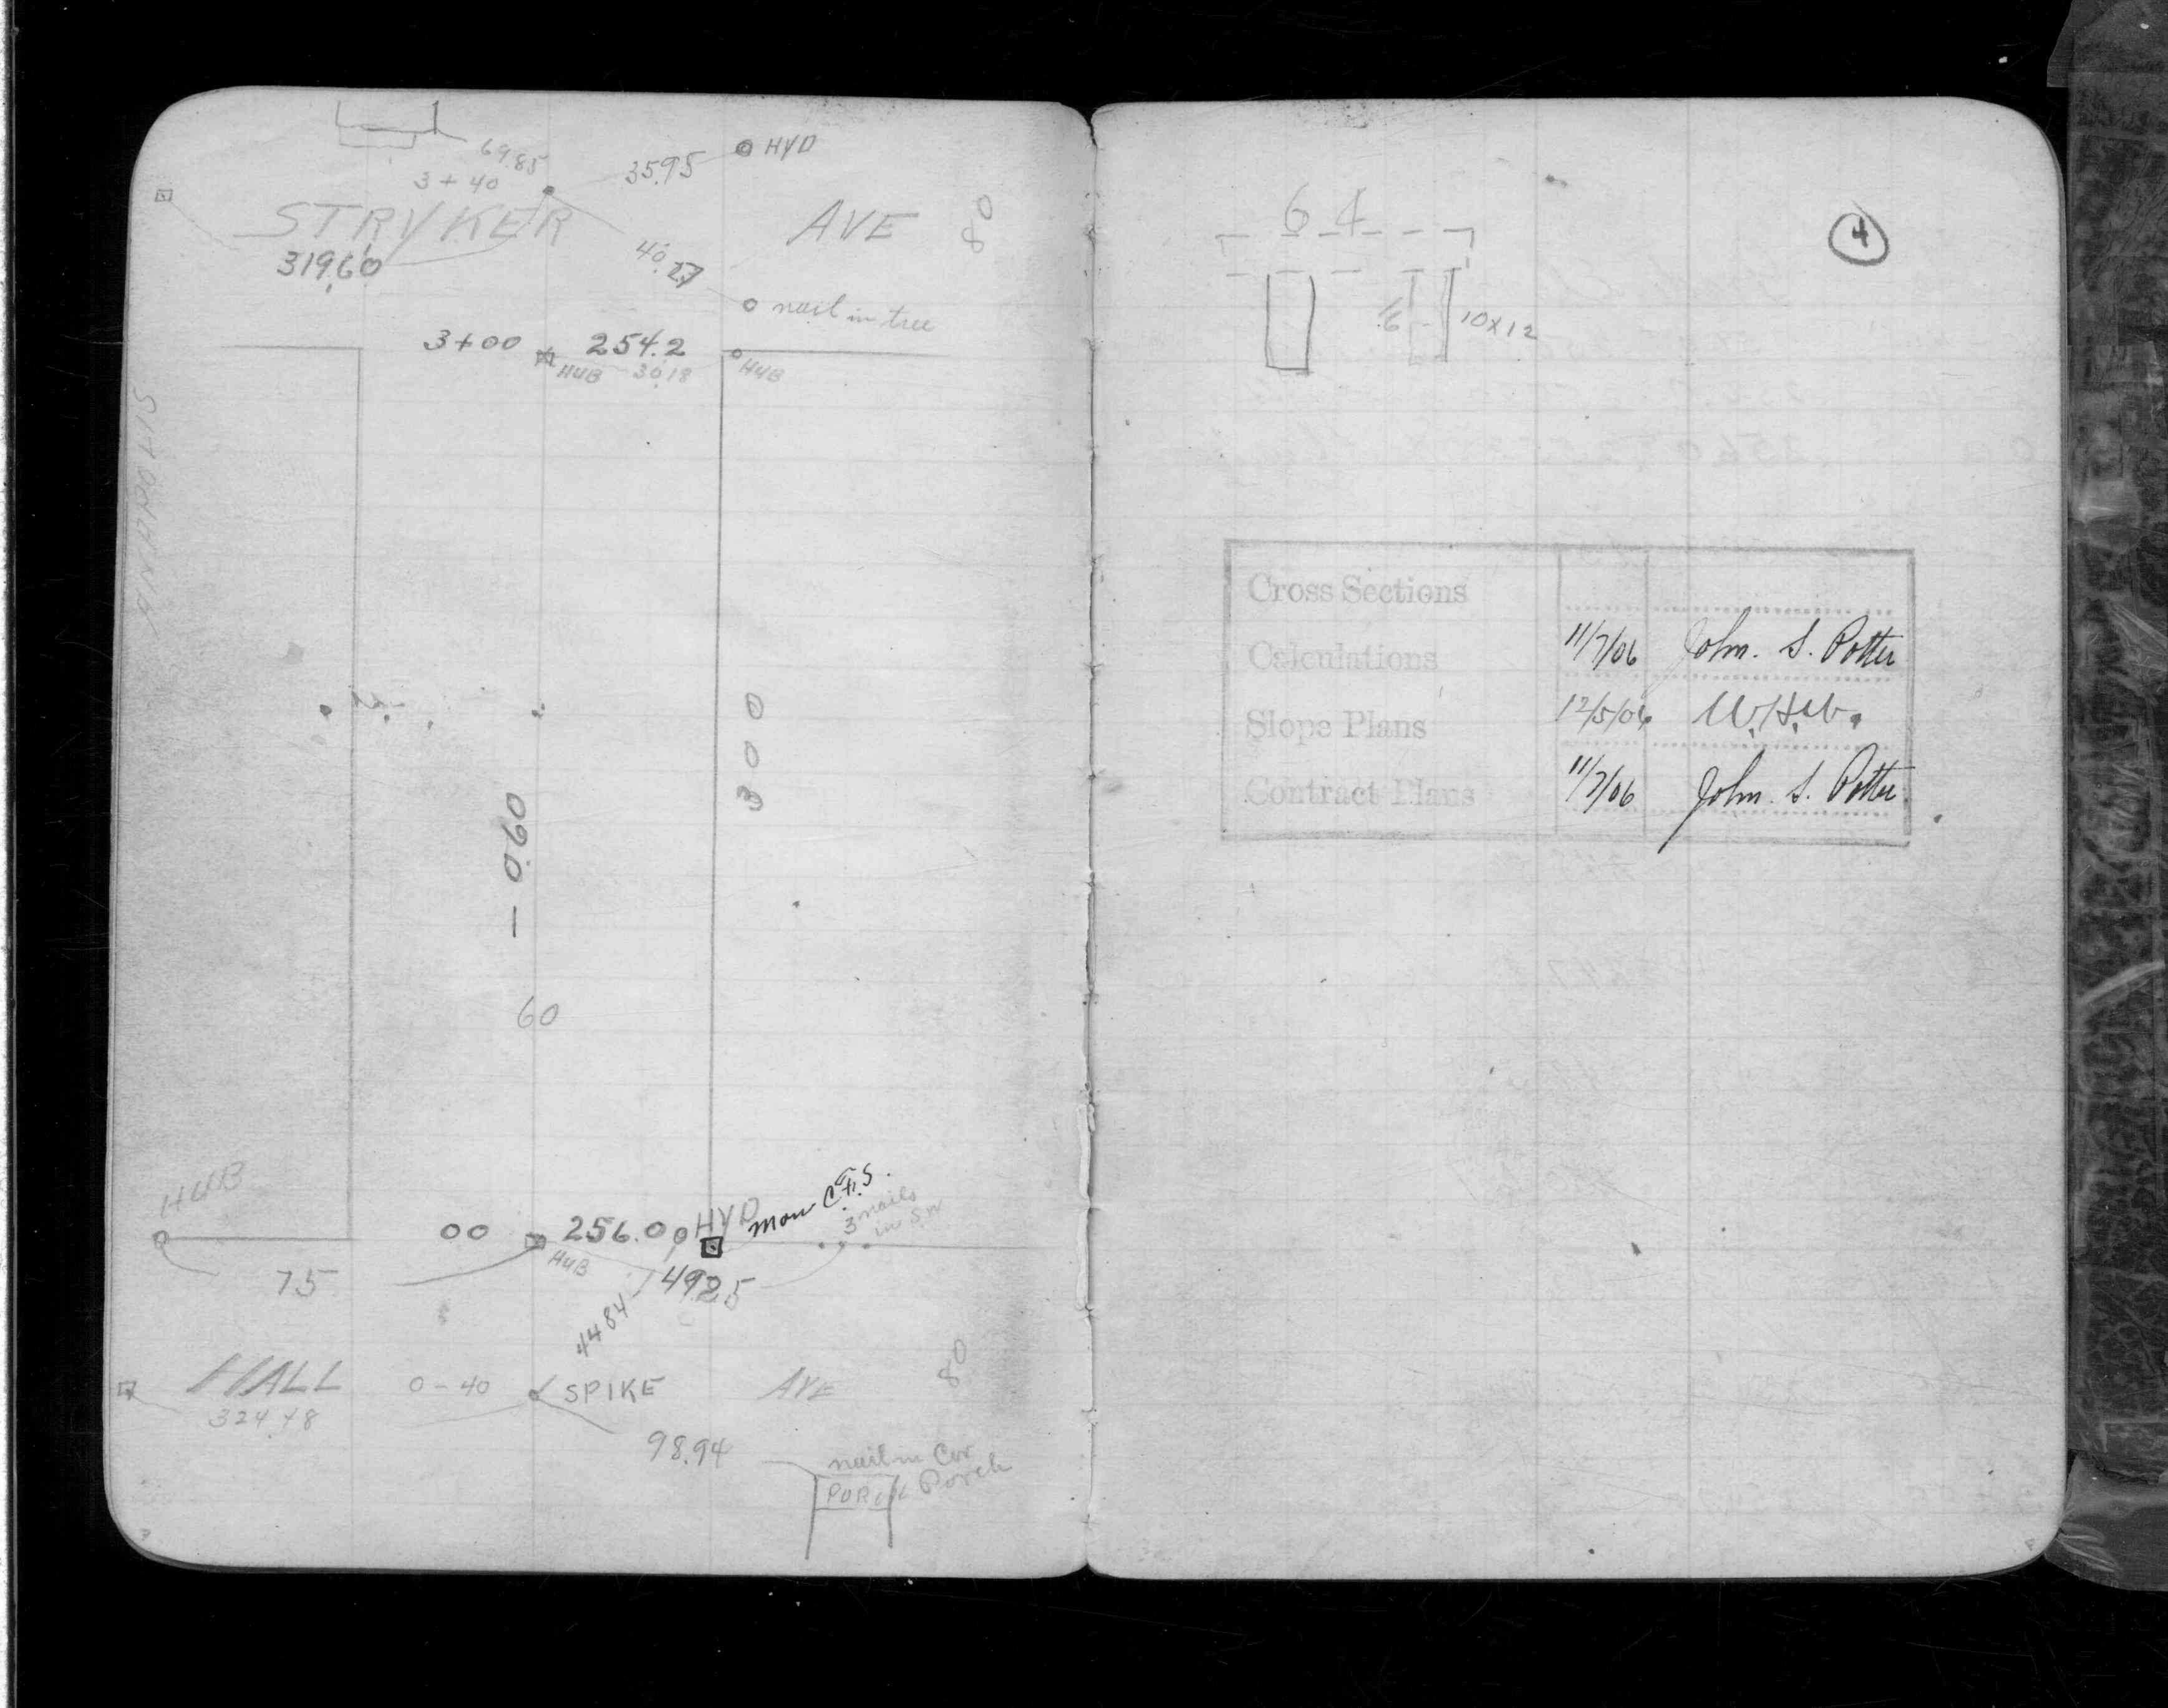 69.85
3 + 40
35.95
HYD
STRYKER
AVE
80
319.60
40.27
nail in tree
3+00
254.2
HUB
30.18
HUB
300
- 0.60
60
HUB
00
256.00
HYD
mon C.F.S.
3 nails
in S.W.
HUB
75
49.25
44.84
HALL
0 - 40
SPIKE
AVE
80
324.48
98.94
nail in Cor
Porch
PORCH
4
64
16
10x12
Cross Sections
Calculations 11/7/06 John. S. Potter
Slope Plans 12/5/06
Contract Plans 11/7/06 John. S. Potter